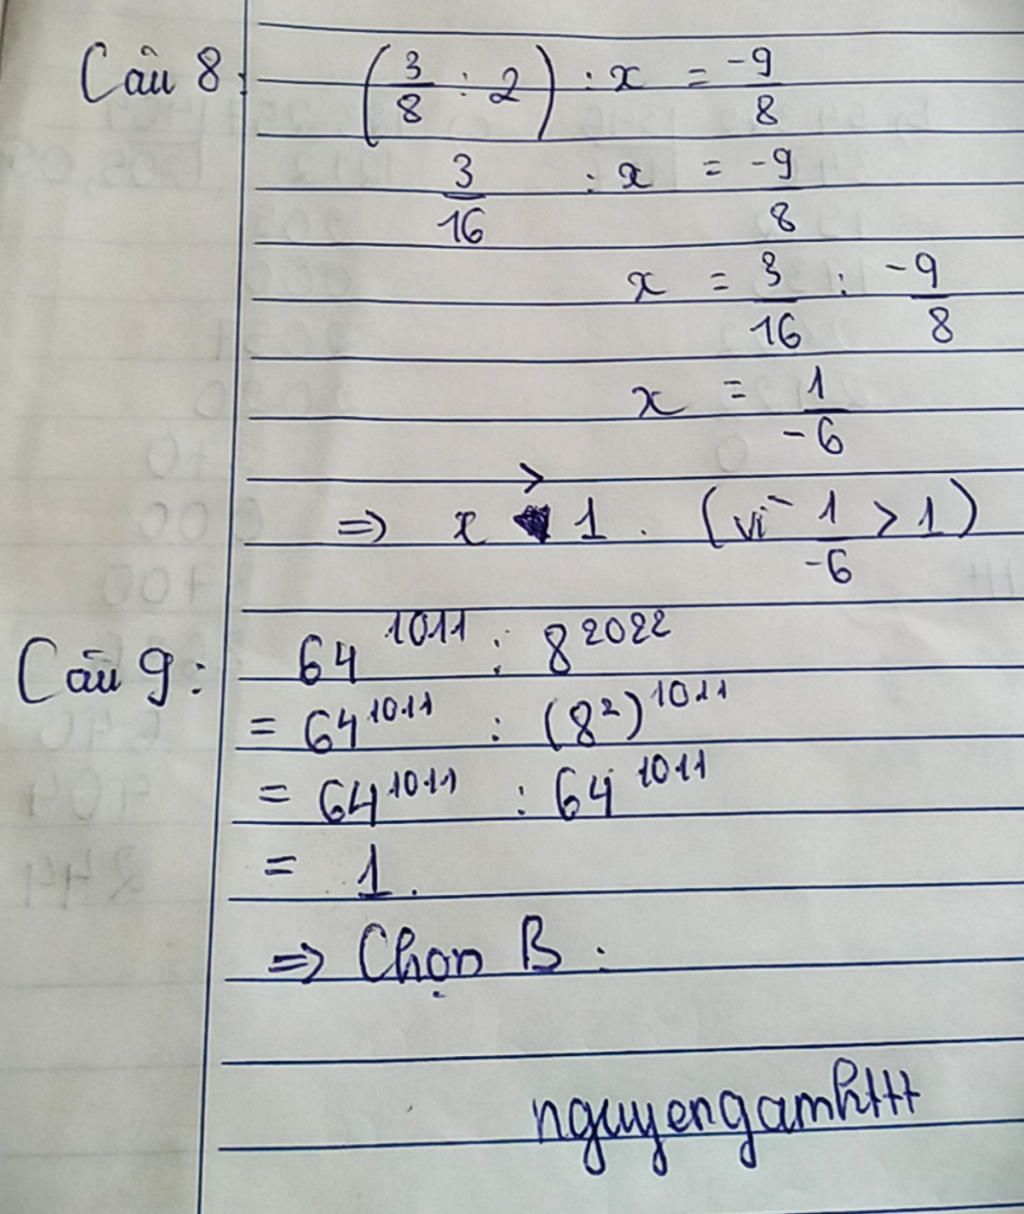 Câu 8: (3/8 : 2) : x = -9/8
3/16 : x = -9/8
x = 3/16 : -9/8
x = 1/-6
=> x > 1. (vì 1/-6 > 1)
Câu 9: 64^1011 : 8^2022
= 64^1011 : (8^2)^1011
= 64^1011 : 64^1011
= 1.
=> Chọn B.
nguyengamhttt